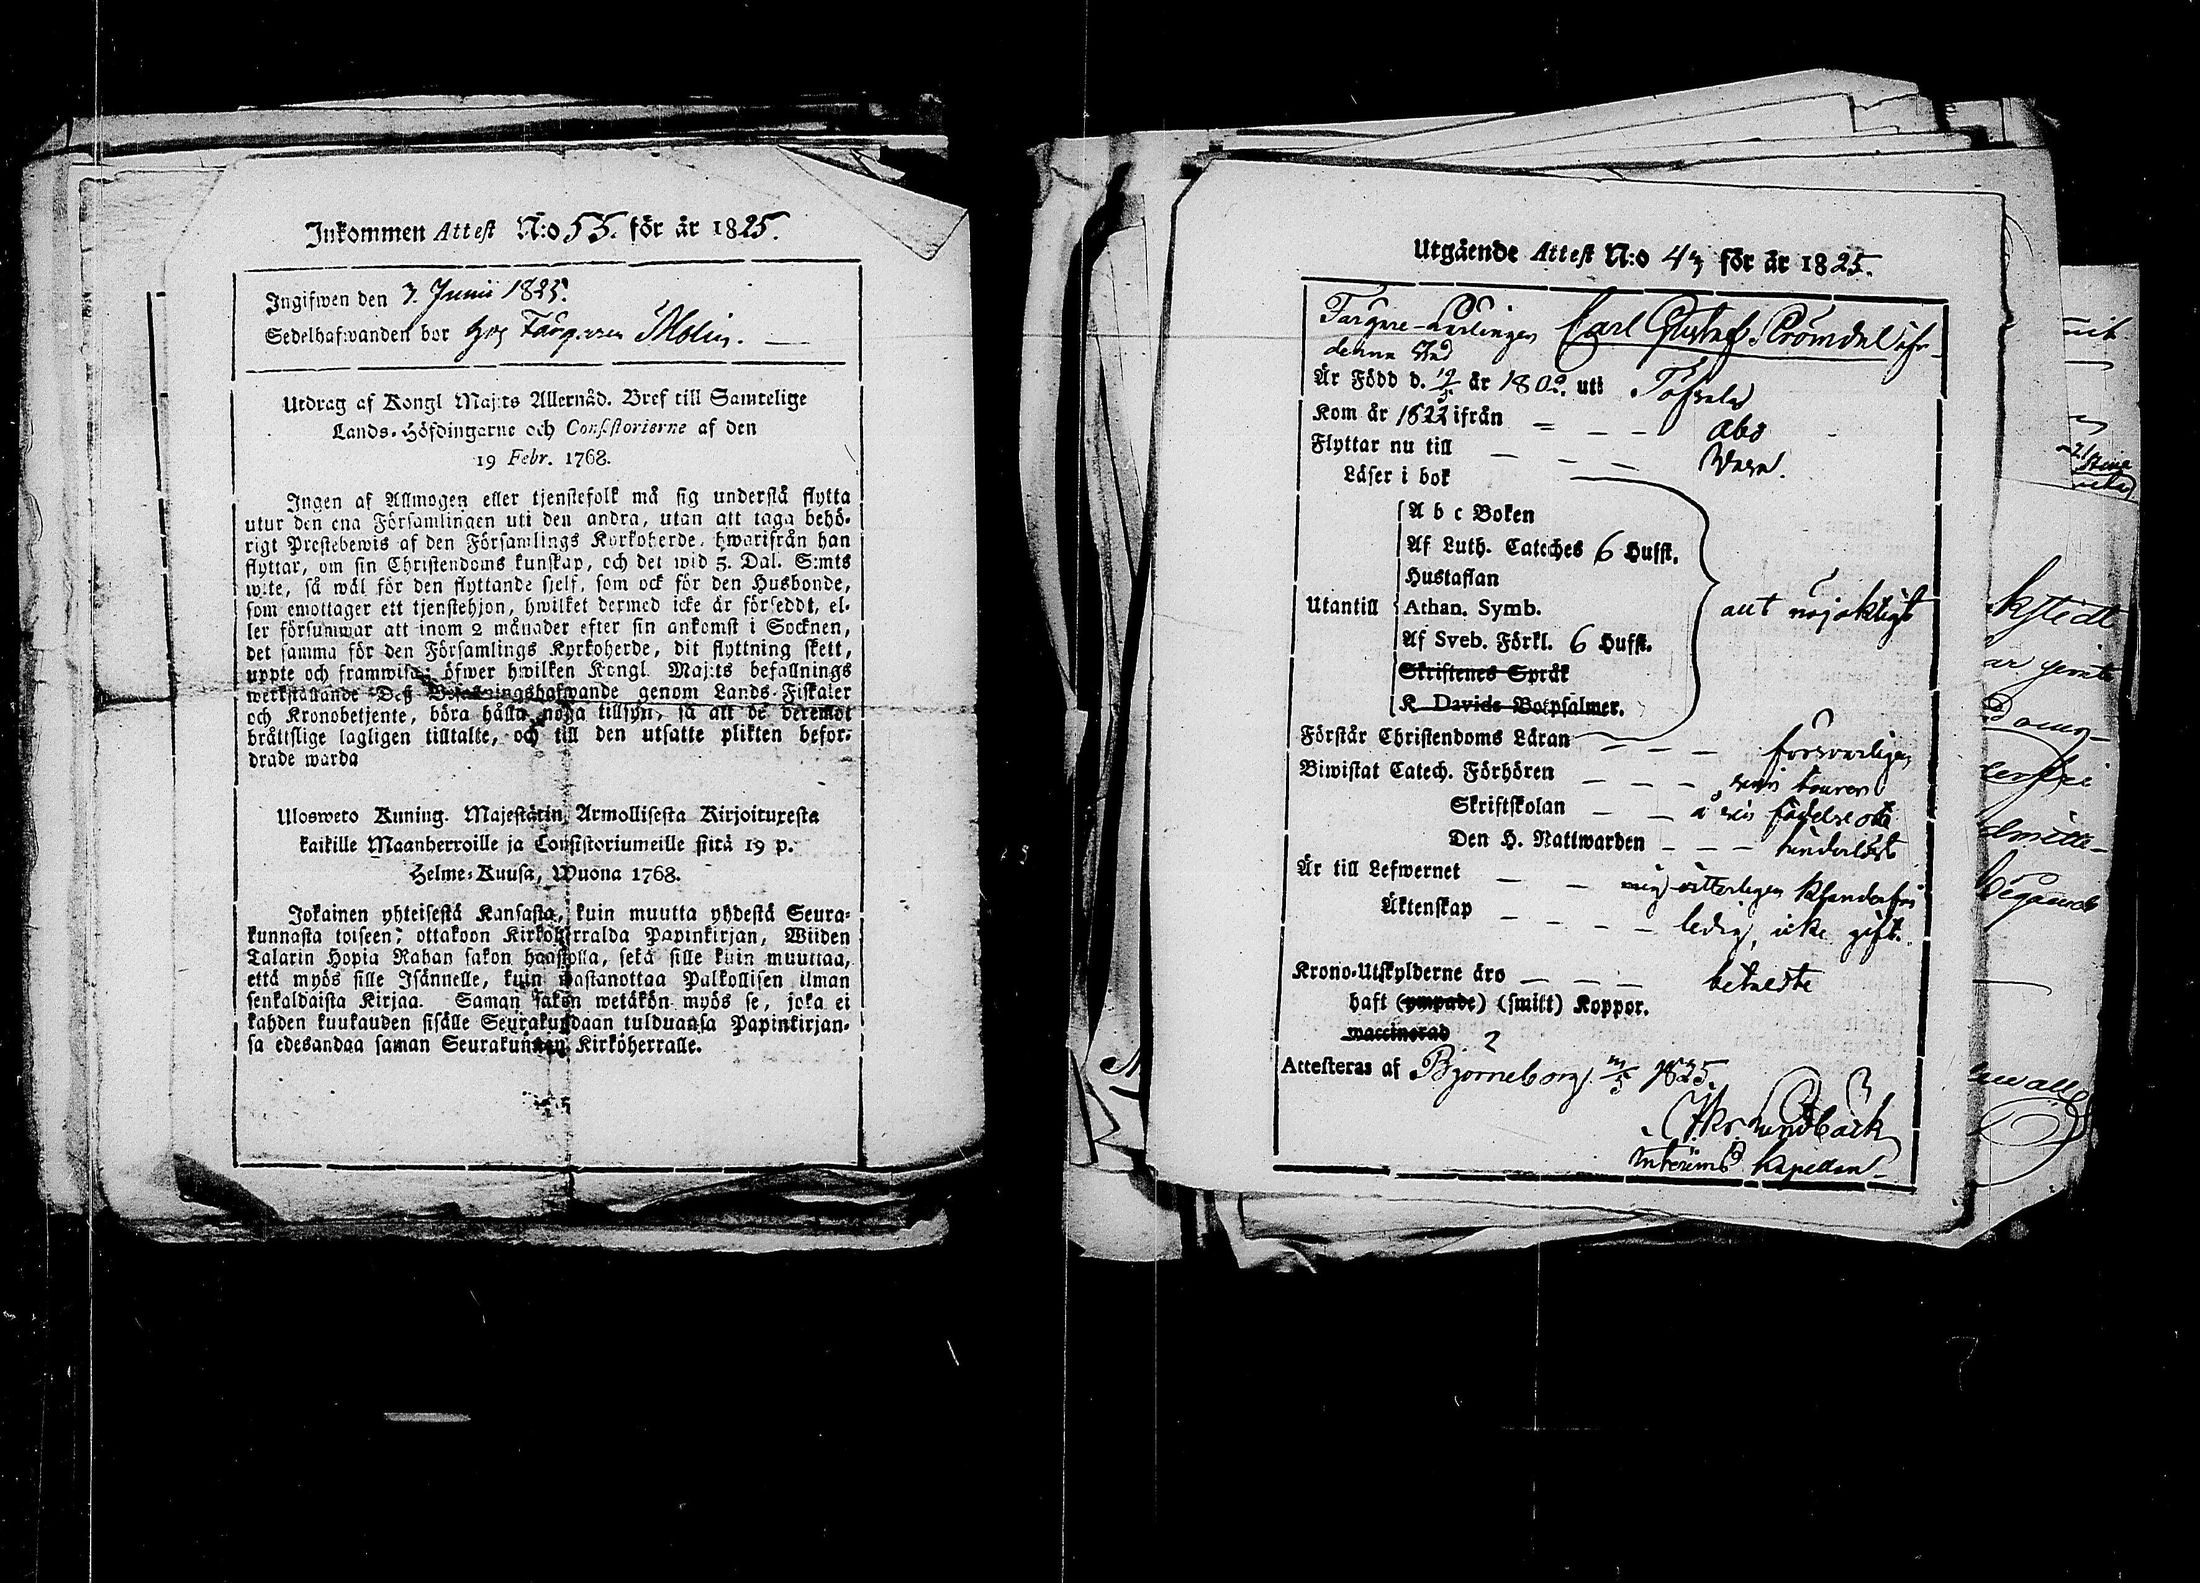 Inkommen Attest N:o 53. för år 1825.
Ingifwen den 3. Junii 1825.
Sedelhafwanden bor hos Färgaren Molin.
Utdrag af Kongl Maj:ts Allernåd. Bref till Samtelige
Lands-Höfdingarne och Consistorierne af den
19 Febr. 1768.
Ingen af Allmogen eller tjenstefolk må sig understå flytta
utur den ena Församlingen uti den andra, utan att taga behö-
rigt Prestebewis af den Församlings Kyrkoherde, hwarifrån han
flyttar, om sin Christendoms kunskap, och det wid 5. Dal. S:mts
wite, så wäl för den flyttande sjelf, som ock för den Husbonde,
som emottager ett tjenstehjon, hwilket dermed icke är försedt, el-
ler försummar att inom 2 månader efter sin ankomst i Socknen,
det samma för den Församlings Kyrkoherde, dit flyttning skett,
uppte och framwisa, öfwer hwilken Kongl. Maj:ts befallnings
werkställande Deß Befallningshafwande genom Lands-Fiskaler
och Kronobetjente, böra hålla noga tillsyn, så att de deremot
bråttslige lagligen tilltalte, och till den utsatte plikten befor-
drade warda
Uloswetö Kuning. Majestätin Armollisesta Kirjoituxesta
kaikille Maanherroille ja Consistoriumeille siitä 19 p.
Helme-Kuusa, Wuona 1768.
Jokainen yhteisestä Kansasta, kuin muutta yhdestä Seura-
kunnasta toiseen, ottakoon Kirkoherralda Papinkirjan, Wiiden
Talarin Hopia Rahan sakon haastolla, sekä sille kuin muuttaa,
että myös sille Isännelle, kuin wastanottaa Palkollisen ilman
senkaldaista Kirjaa. Saman sakon wetäkön myös se, joka ei
kahden kuukauden sisälle Seurakundaan tulduansa Papinkirjan-
sa edesandaa saman Seurakunnan Kirköherralle.
Utgående Attest N:o 43 för år 1825.
Färgare-Lärlingen Carl Gustaf Strömdal ifr.
denna Stad
Är Född d. 19/5 år 1802. uti Töfsala
Kom år 1822 ifrån Åbo
Flyttar nu till Vasa.
Läser i bok
A b c Boken
Af Luth. Cateches 6 Hufst.
Hustaflan
Utantill Athan. Symb. allt nöjaktigt
Af Sveb. Förkl. 6 Hufst.
Skriftenes Språk
K Davids Botpsalmer.
Förstår Christendoms Läran försvarligen
Biwistat Catech. Förhören sine tourer
Skriftskolan å sin födelse ort
Den H. Nattwarden
Är till Lefwernet mig vitterligen klanderfri
Äktenskap ledig, icke gift.
Krono-Utskylderne äro betalte
haft (ympade) (smitt) Koppor.
waccinerad 2
Attesteras af Björneborg 1825.
Lundbäck
Interims Kapellan